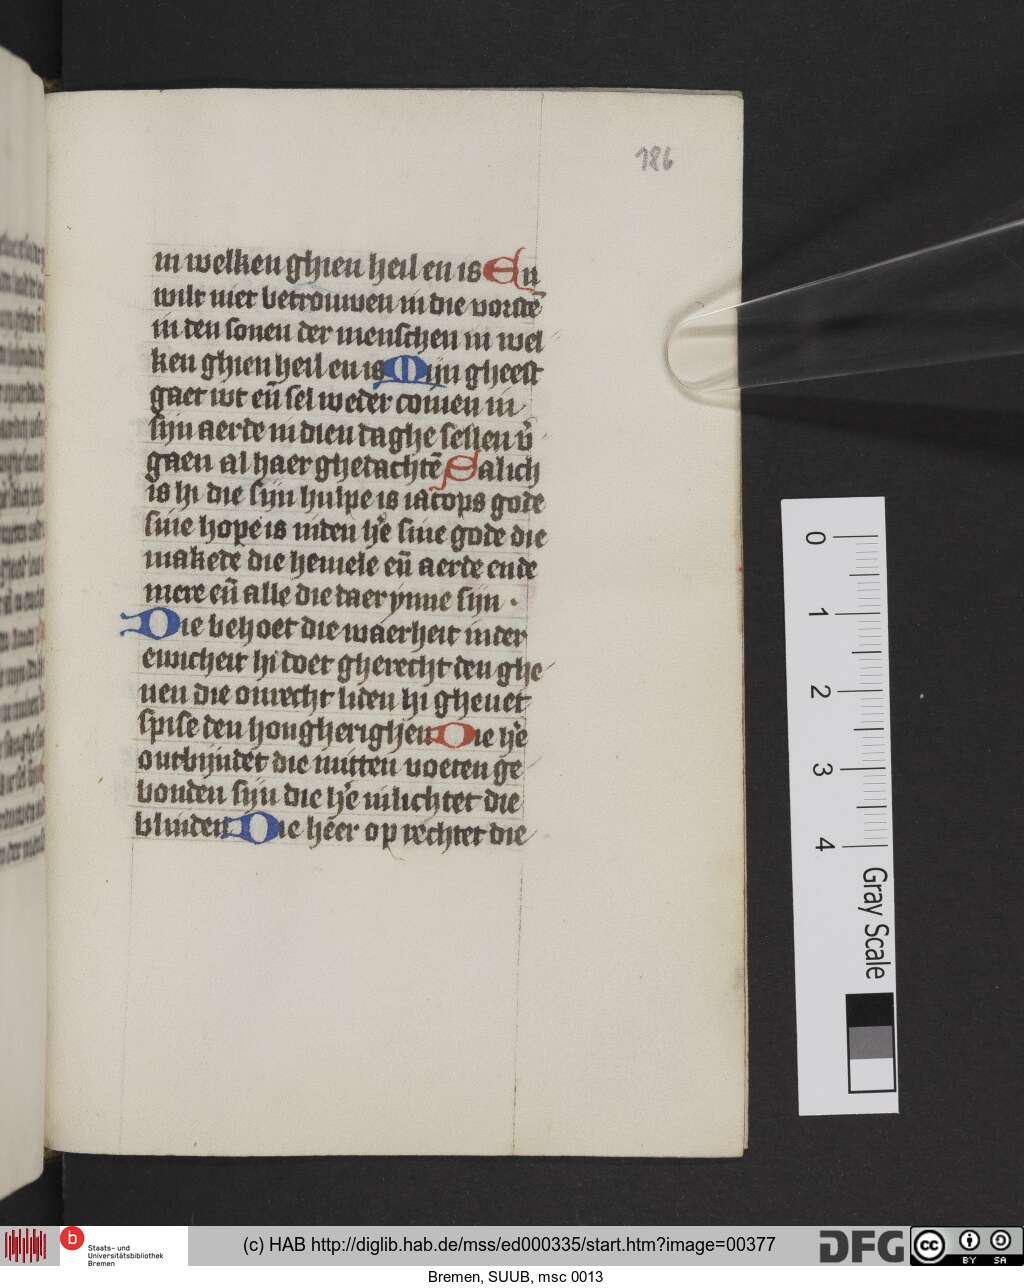 186
in welken ghien heil en is En
wilt niet betrouwen in die vorstē
in den sonen der menschen in wel
ken ghien heil en is Mijn gheest
gaet wt eñ sel weder comen in
sijn aerde in dien daghe sellen v̄
gaen al haer ghedachtē Salich
is hi die sijn hulpe is iacops gode
sine hope is inden hē sine gode die
makede die hemele eñ aerde ende
mere eñ alle die daer ynne sijn ·
Die behoet die waerheit inder
ewicheit hi doet gherecht den ghe
nen die onrecht liden hi gheuet
spise den hongherighen Die hē
ontbijndet die mitten voeten ge
bonden sijn die hē inlichtet die
blinden Die heer op rechtet die
0
1
2
3
4
Gray Scale
b
Staats- und
Universitätsbibliothek
Bremen
(c) HAB http://diglib.hab.de/mss/ed000335/start.htm?image=00377
DFG
cc
BY SA
Bremen, SUUB, msc 0013